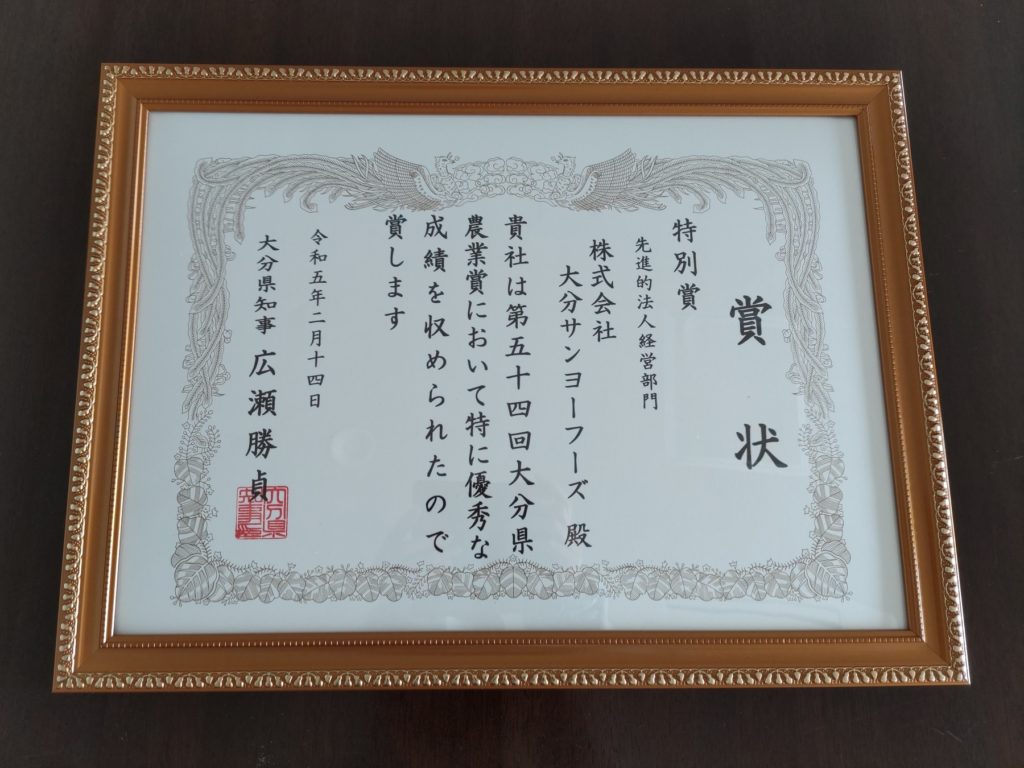 賞状
特別賞
先進的法人経営部門
株式会社
大分サンヨーフーズ 殿
貴社は第五十四回大分県
農業賞において特に優秀な
成績を収められたので
賞します
令和五年二月十四日
大分県知事 広瀬勝貞